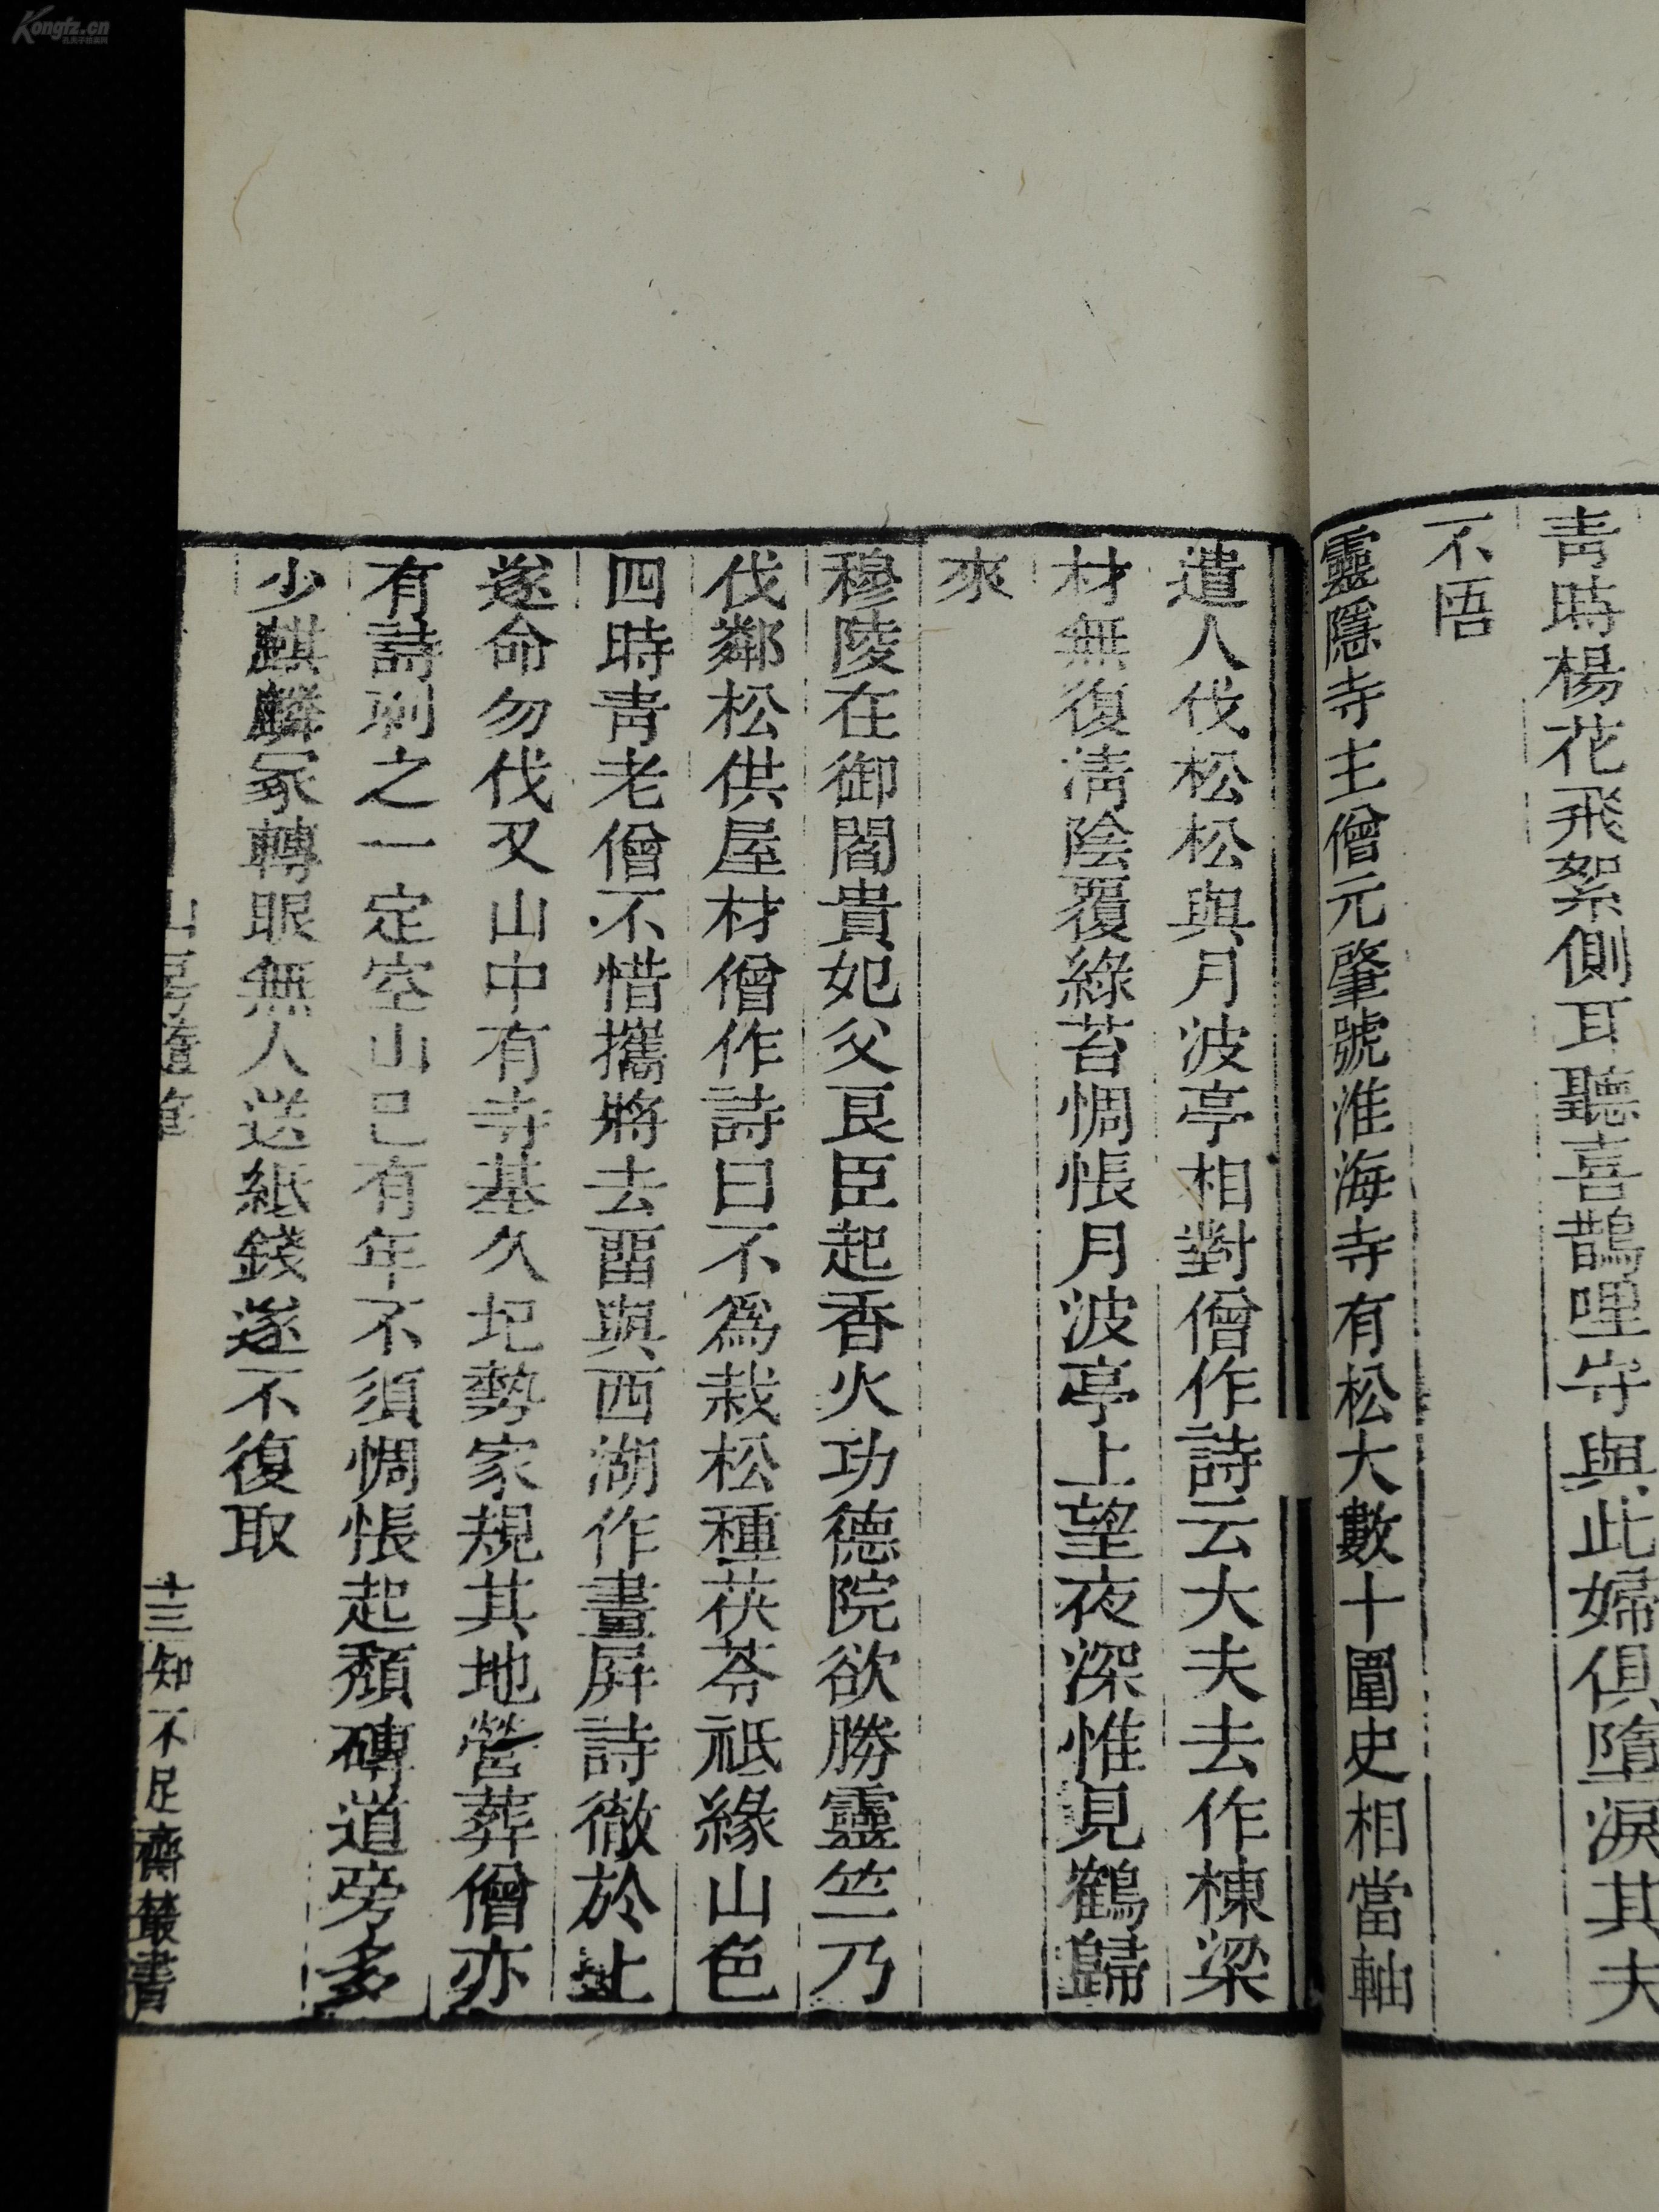 青時楊花飛絮側耳聽喜鵲哩守與此婦俱墮淚其夫
不悟
靈隱寺主僧元肇號淮海寺有松大數十圍史相當軸
遣人伐松松與月波亭相對僧作詩云大夫去作棟梁
材無復清陰覆綠苔惆悵月波亭上望夜深惟見鶴歸
來
穆陵在御閻貴妃父良臣起香火功德院欲勝靈竺乃
伐鄰松供屋材僧作詩曰不爲栽松種茯苓祗緣山色
四時青老僧不惜攜將去畱與西湖作畫屏詩徹於上
遂命勿伐又山中有寺基久圮勢家規其地營葬僧亦
有詩刺之一定空山已有年不須惆悵起頹磚道旁多
少麒麟冢轉眼無人送紙錢遂不復取
山房隨筆
十三
知不足齋叢書
Kongfz.cn